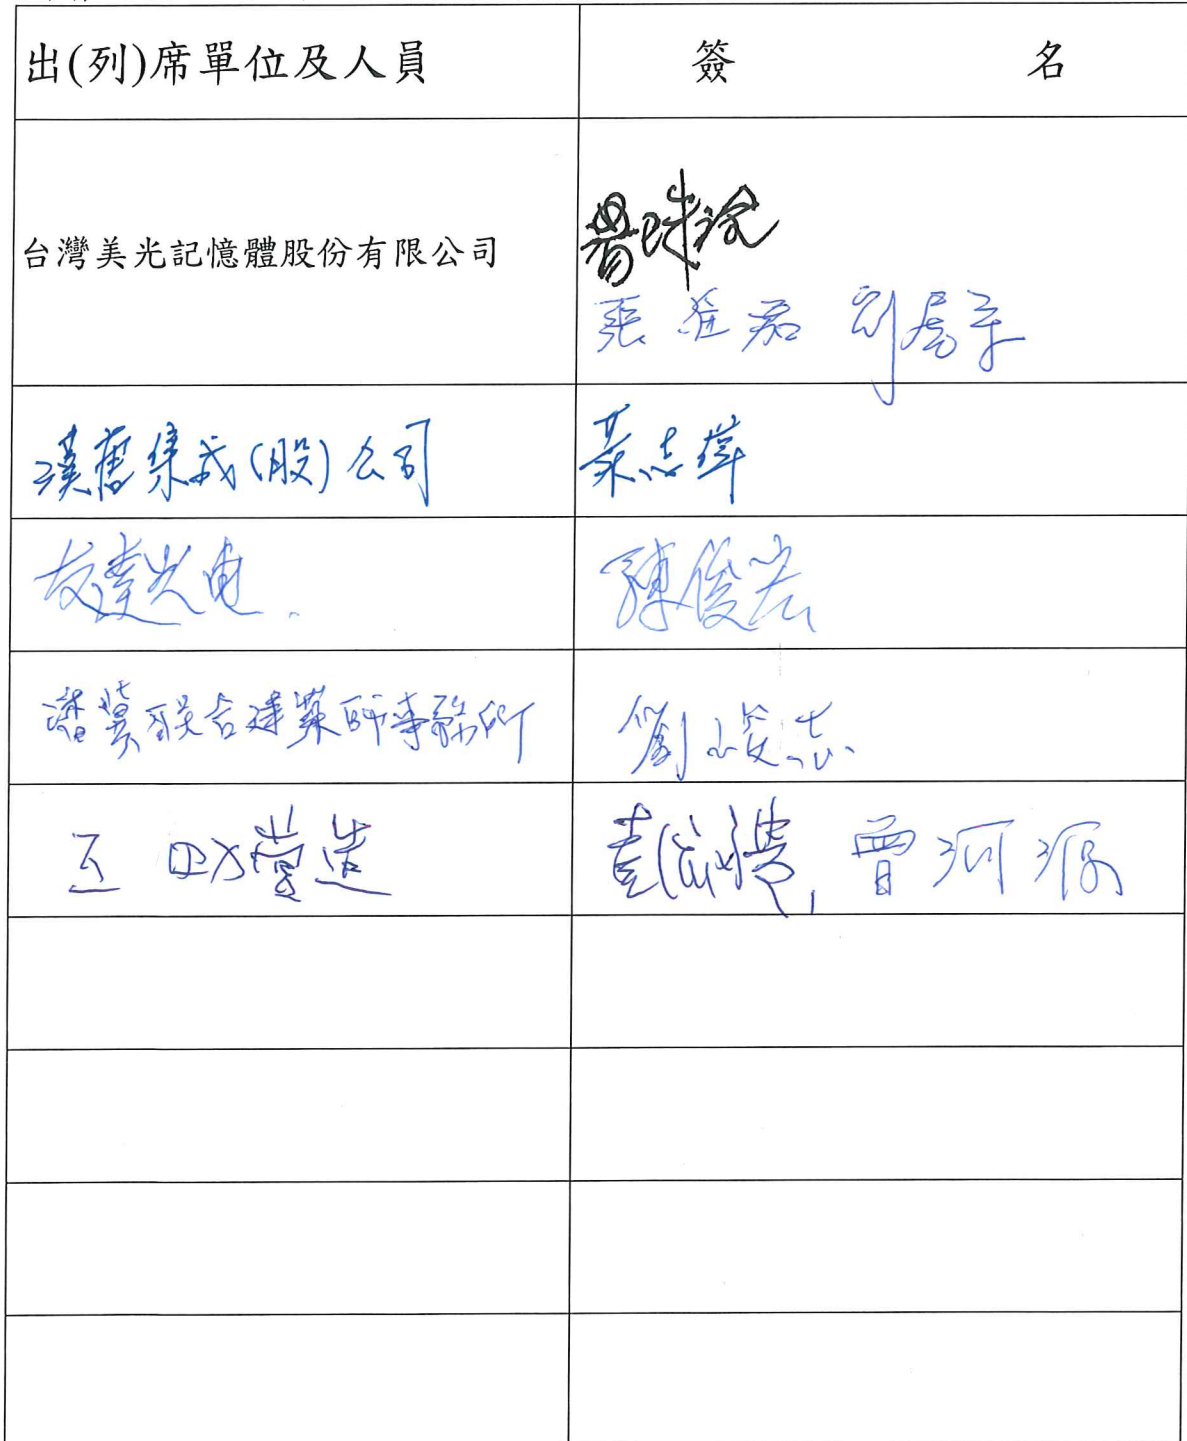 出(列)席單位及人員 簽 名
台灣美光記憶體股份有限公司
張 君 劉
漢唐集成(股)公司 葉志偉
友達光電 陳俊宏
潘冀联合建築師事務所 劉 志
互助營造 彭 曾河源